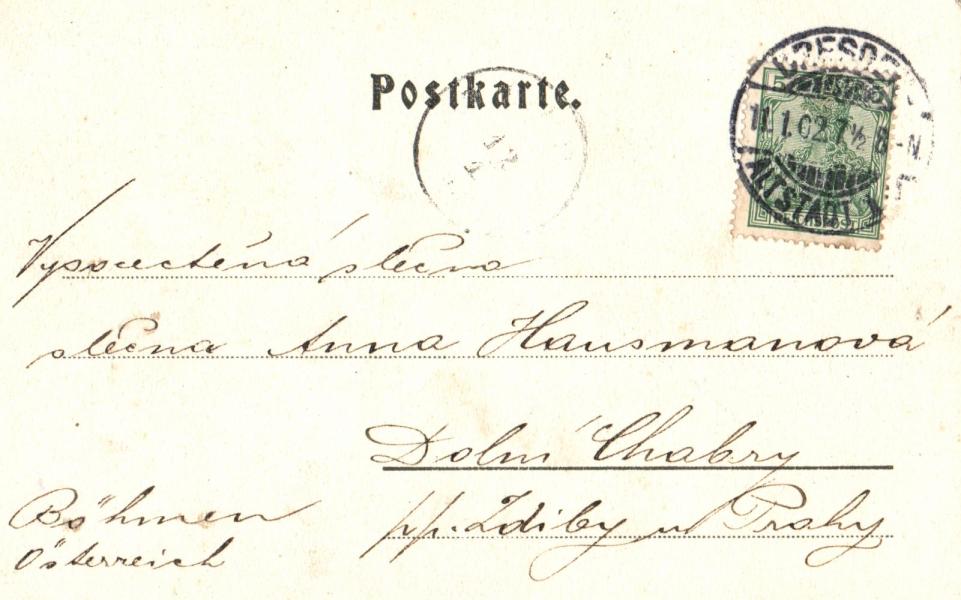 Postkarte.
DRESDEN
11.1.02.7½-8N.
ALTSTADT
REICHSPOST
Vysocectěná slečna
slečna Anna Hausmanová
Dolní Chabry
pp. Zdiby u Prahy
Böhmen
Österreich